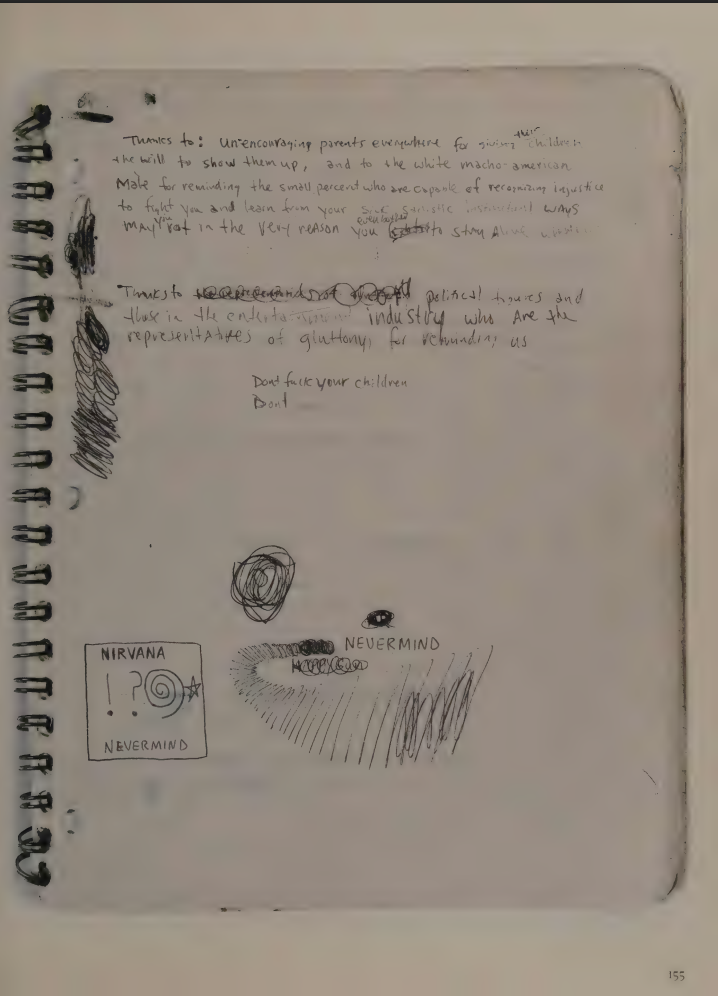 Thanks to: unencouraging parents everywhere for giving their children
the will to show them up, and to the white macho american
Male for reminding the small percent who are capable of recognizing injustice
to fight you and learn from your sick sadistic ways
may you rot in the very reason you to stay alive
Thanks to political figures and
those in the entertainment industry who Are the
representatives of gluttony, for reminding us
Dont fuck your children
Dont
NEVERMIND
NIRVANA
! ?
NEVERMIND
155